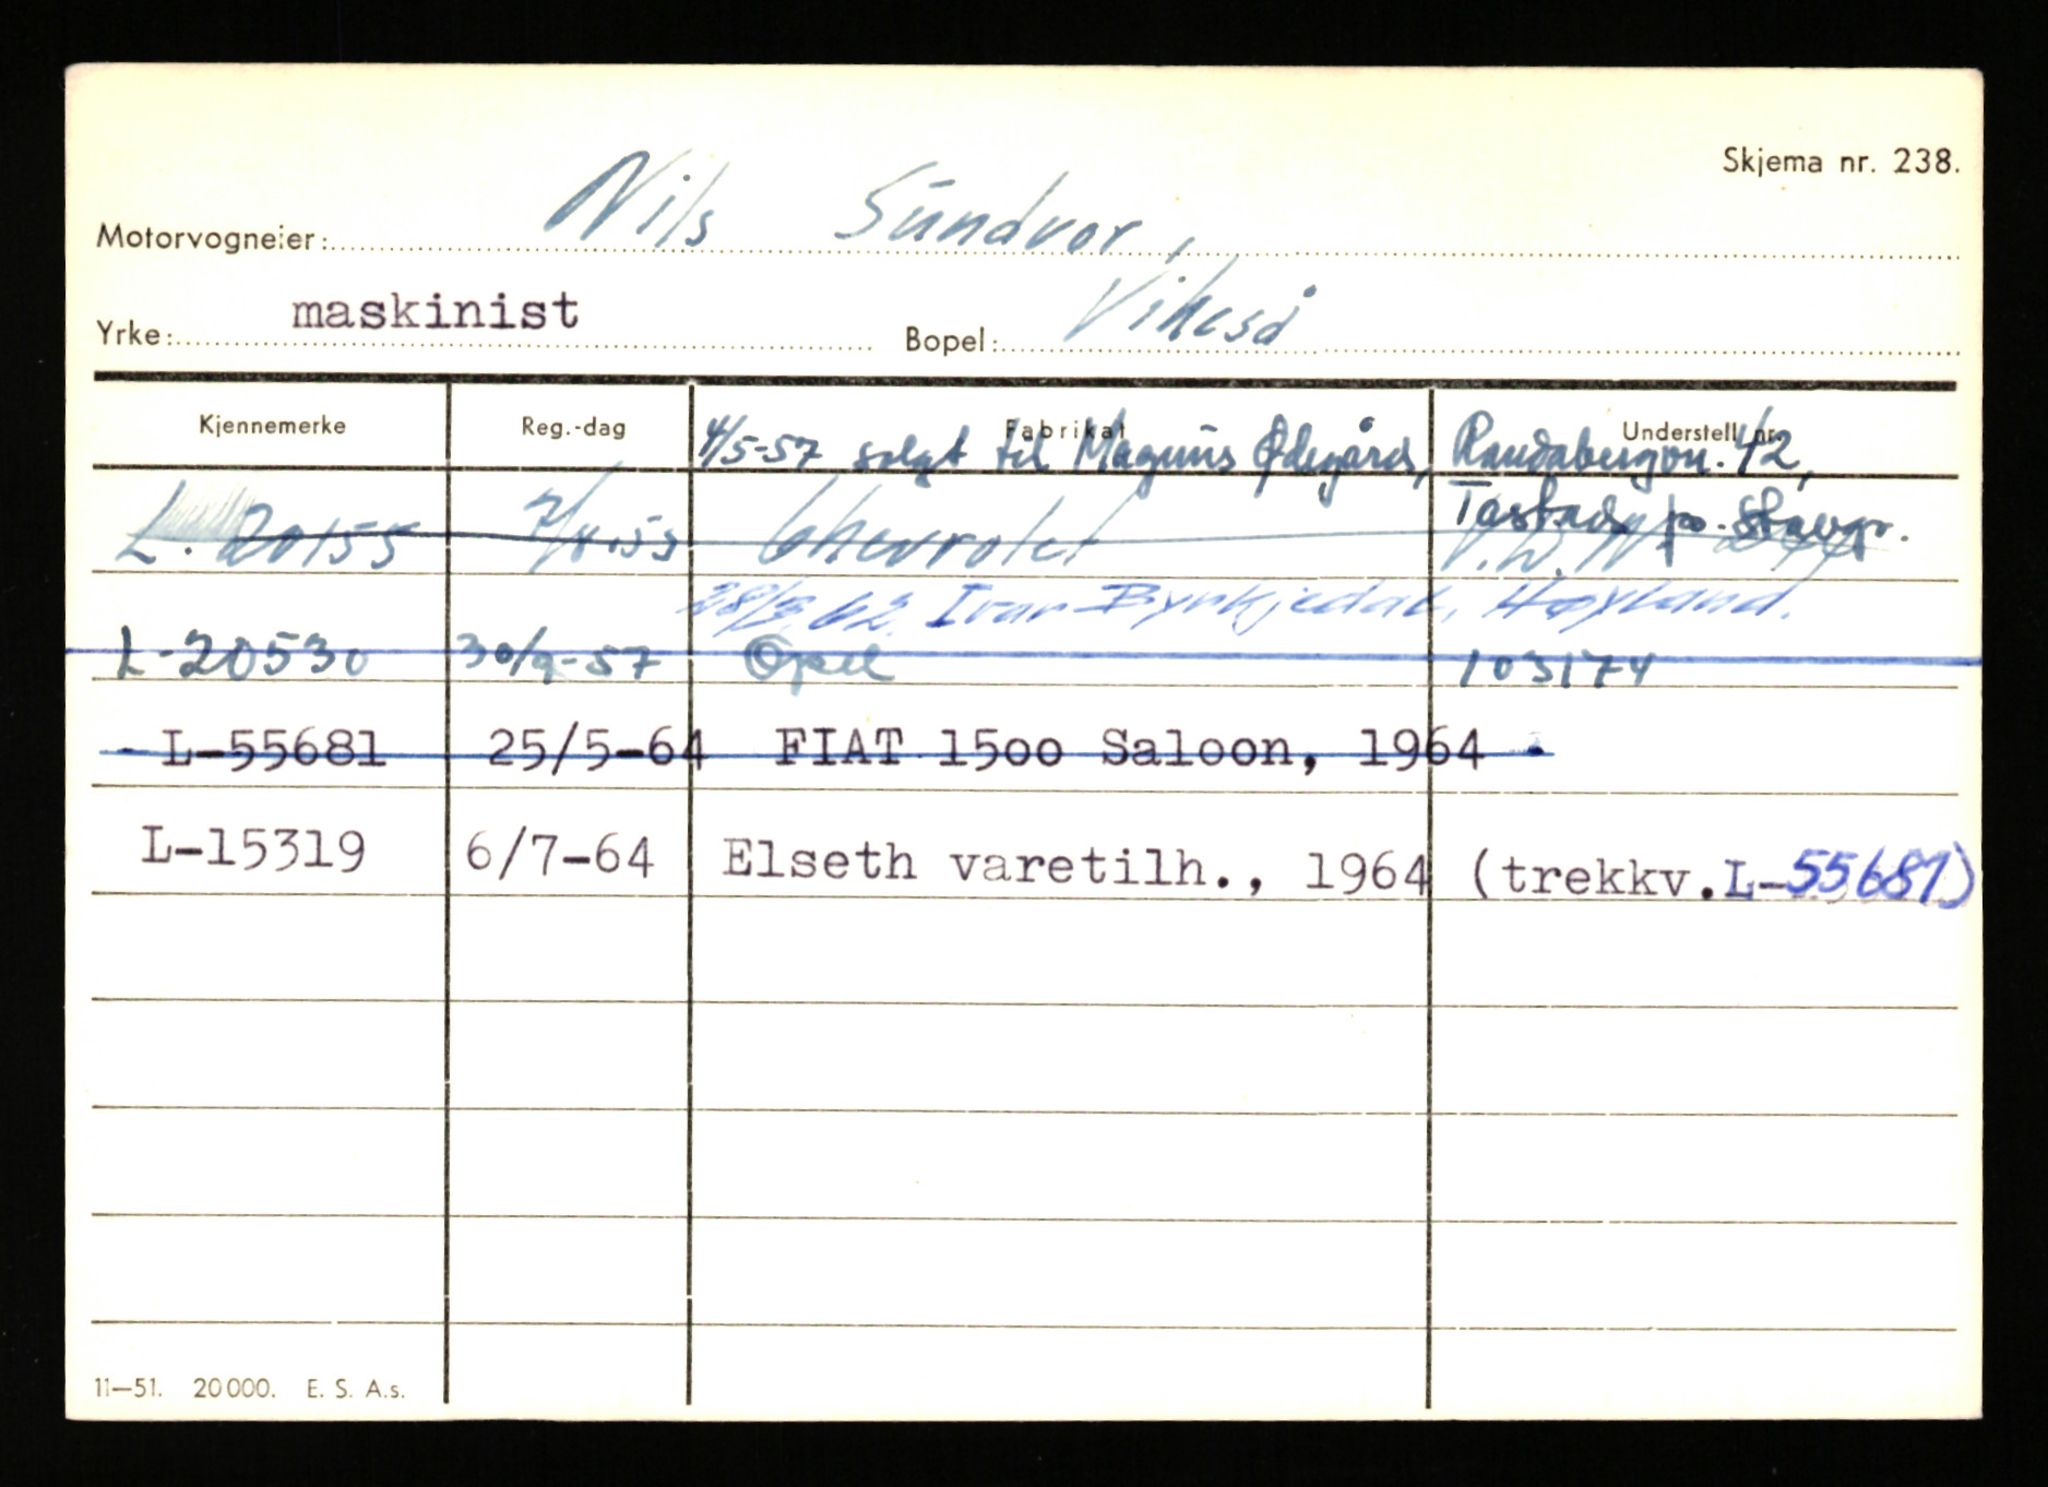 Skjema nr. 238.
Motorvogneier: Nils Sundvor,
Yrke: maskinist Bopel: Vikeså
Kjennemerke Reg.-dag Fabrikat Understell nr.
4/5-57 solgt til Magnus Ødegård, Randabergvn. 42,
Tastad p. Stavgr.
L. 20155 Chevrolet
28/3.62. Ivar Byrkjedal, Høyland.
L-20530 30/9-57 Opel 103174
L-55681 25/5-64 FIAT 1500 Saloon, 1964
L-15319 6/7-64 Elseth varetilh., 1964 (trekkv.L-55681)
11-51. 20000. E. S. A.s.